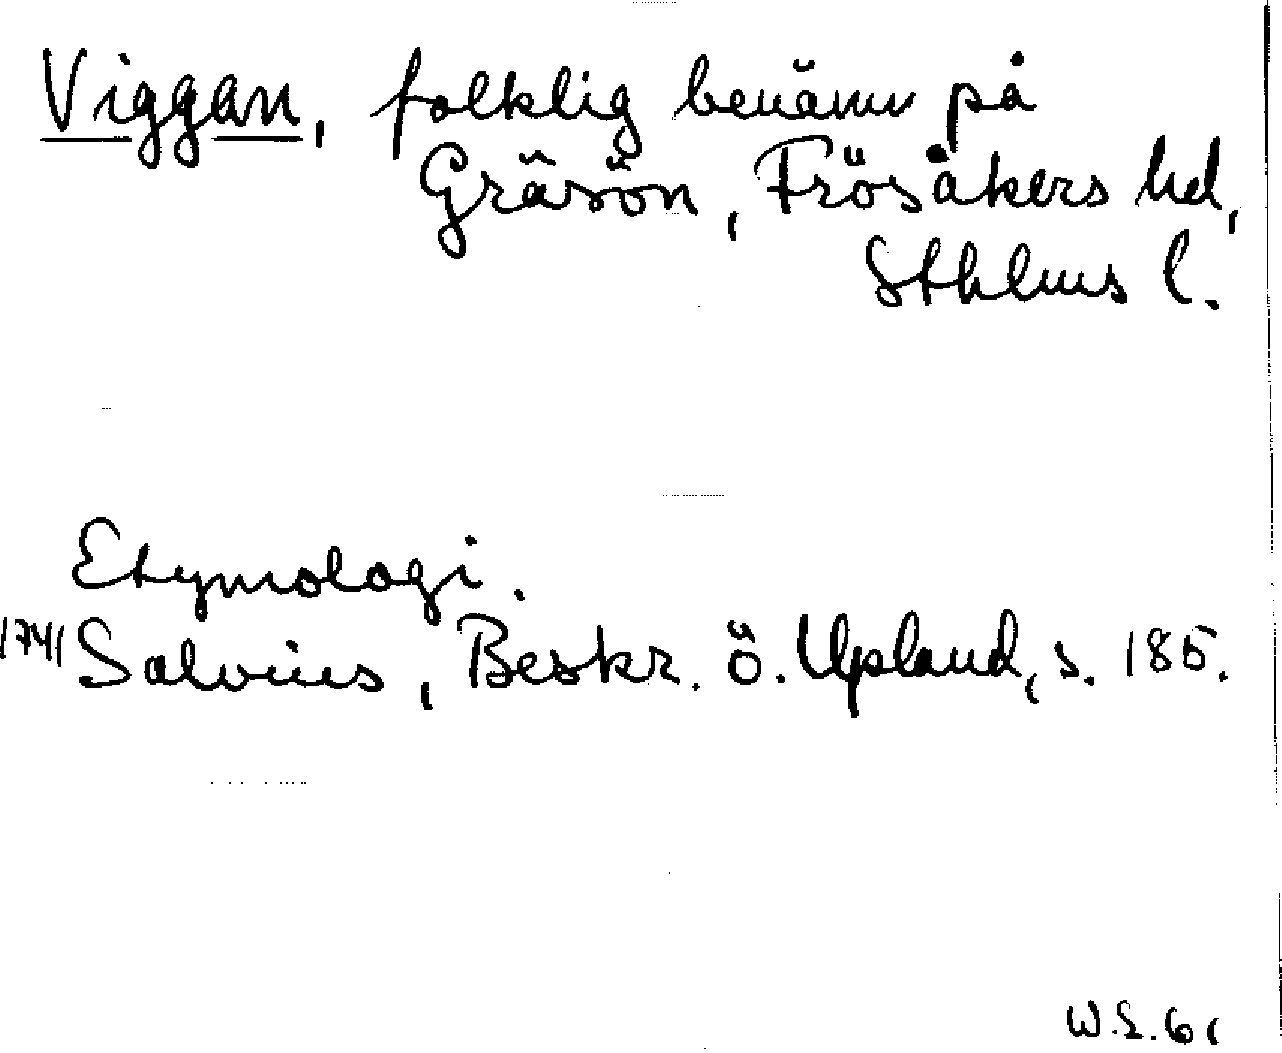 Viggan, folklig benämn på
Gräsön, Frösåkers hd,
Sthlms l.
Etymologi.
1741 Salvius, Beskr. ö. Upland, s. 185.
W.S. 61